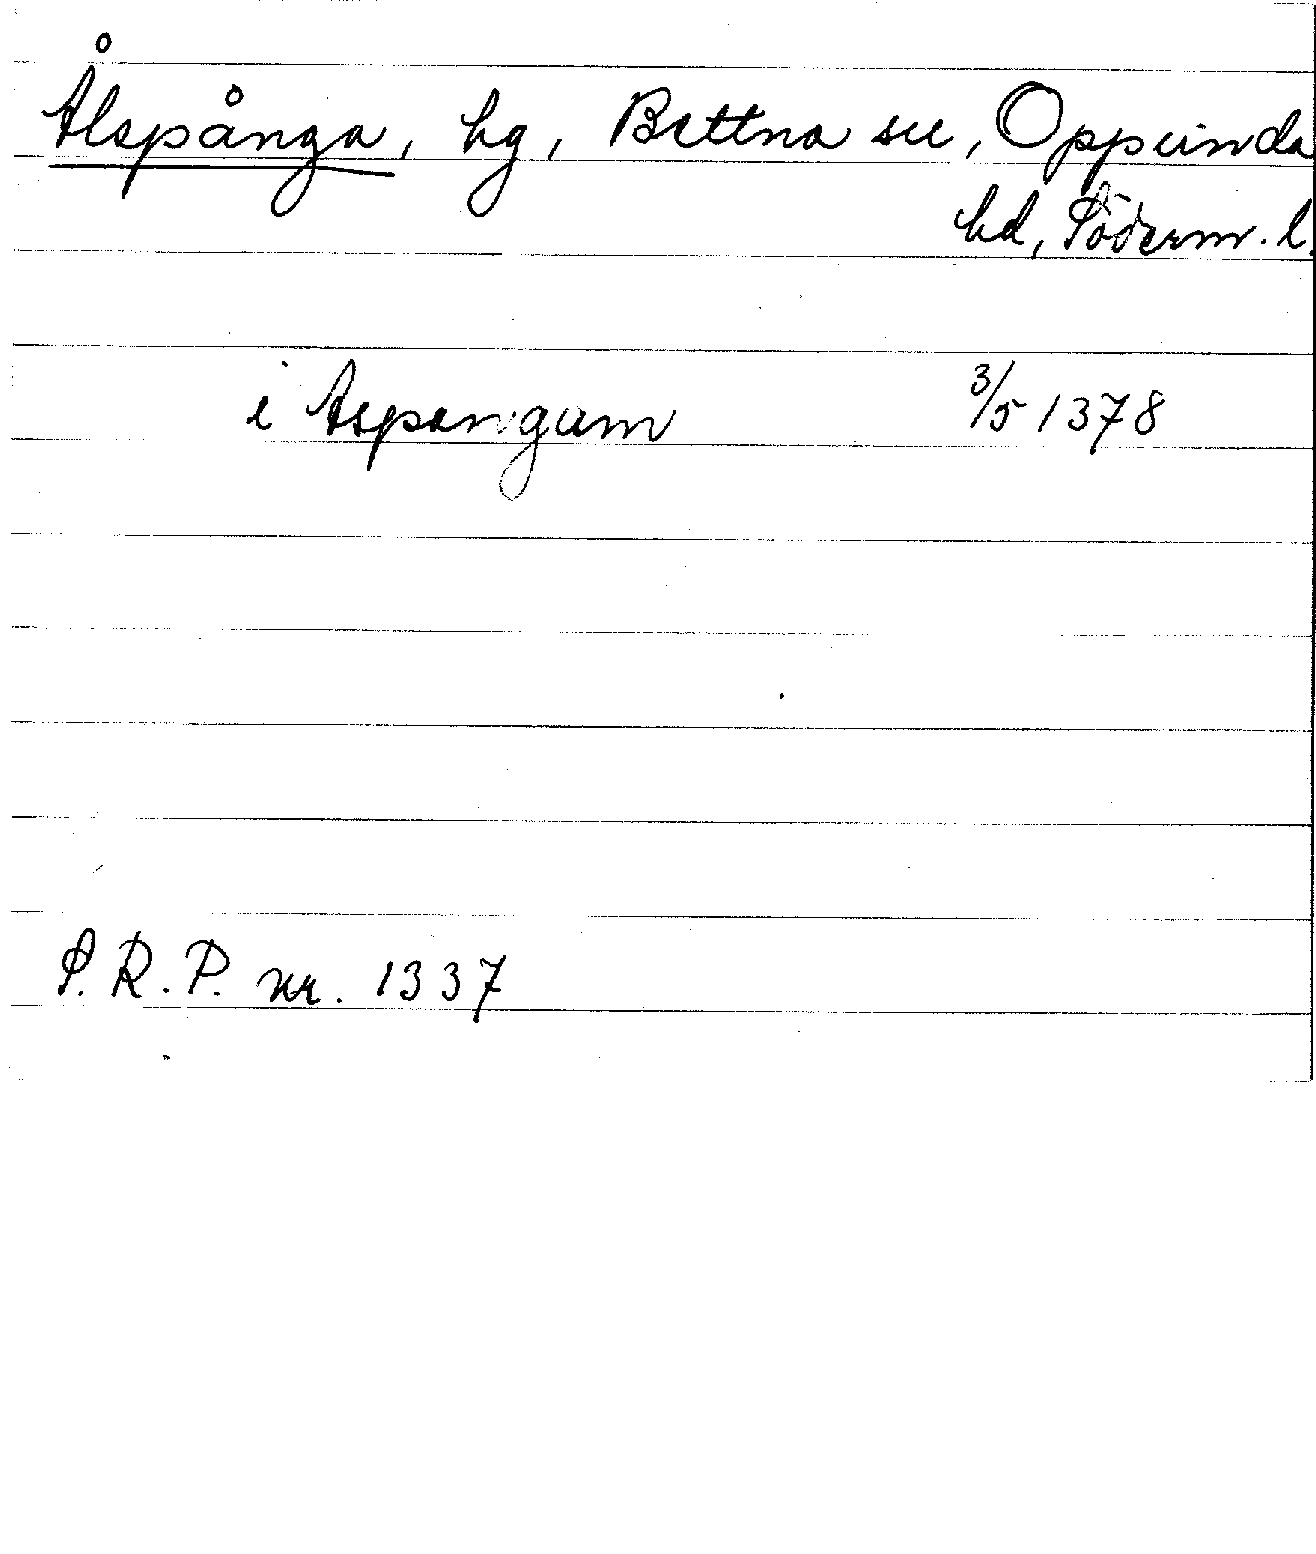 Ålspånga, hg, Bettna sn, Oppunda
hd, Söderm. l.
i Aspangum 3/5 1378
S.R.P. nr. 1337